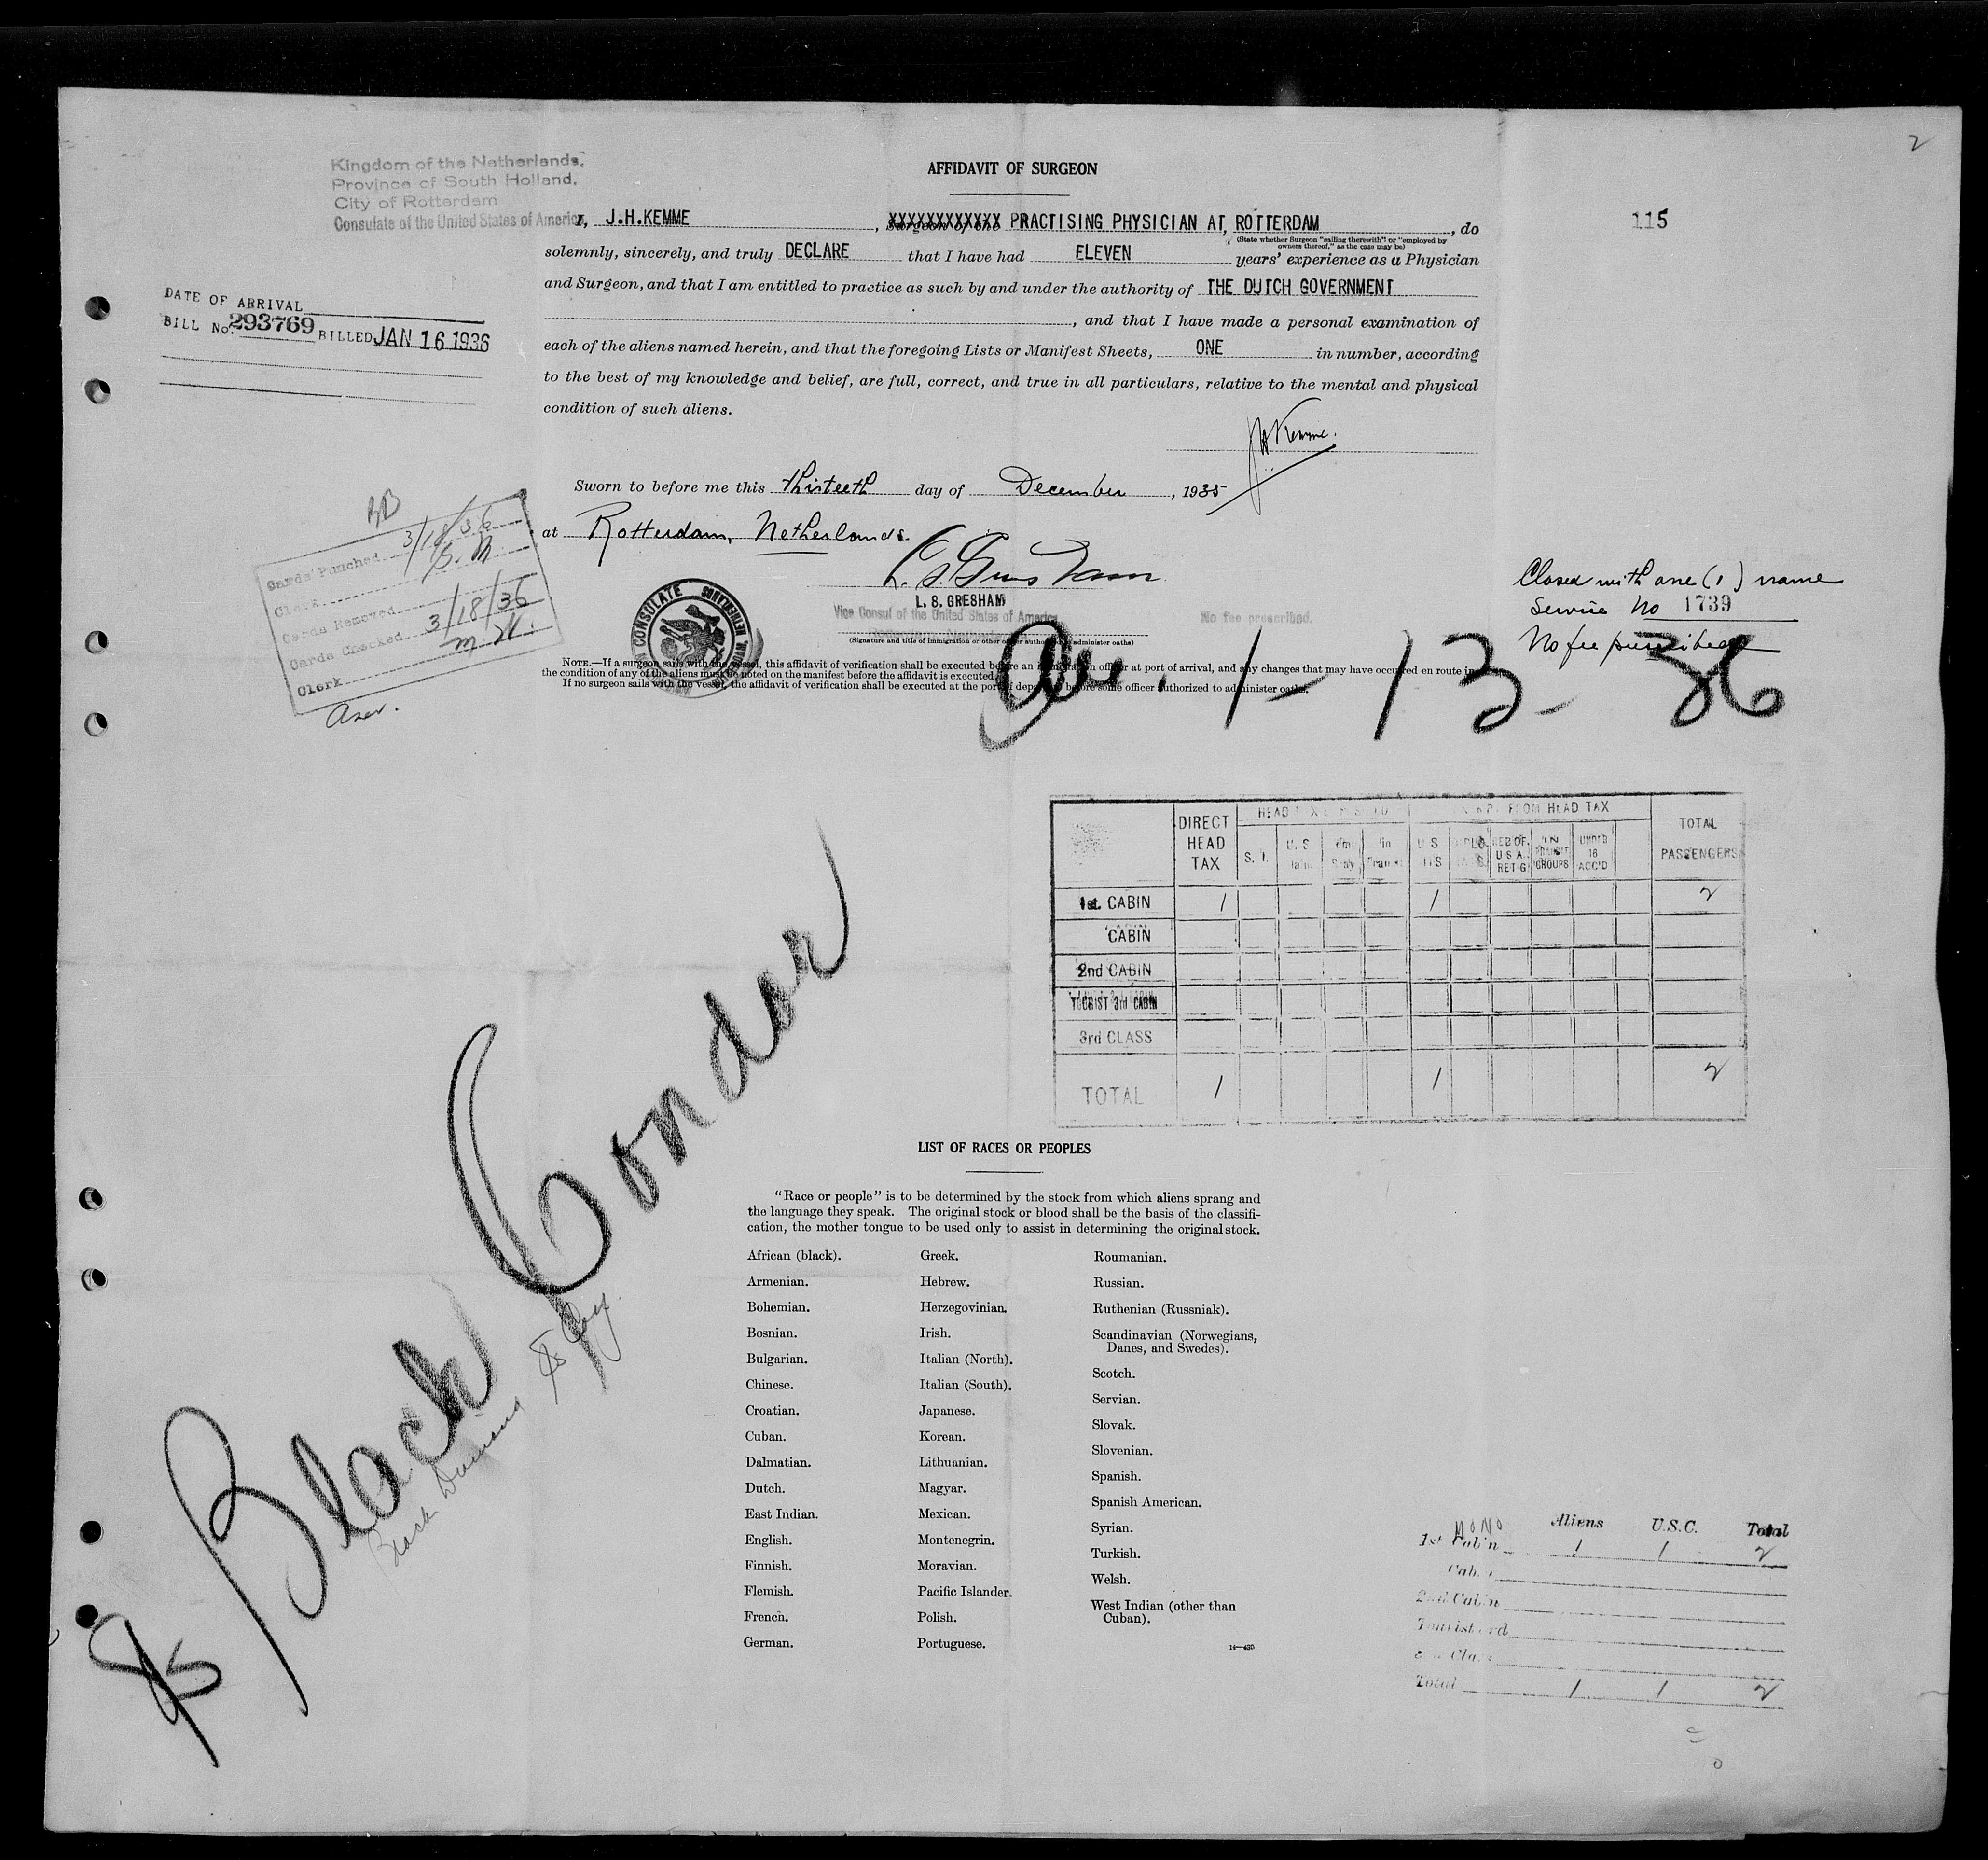 2
Kingdom of the Netherlands,
Province of South Holland,
City of Rotterdam
Consulate of the United States of America,
AFFIDAVIT OF SURGEON
115
I, J.H.KEMME, XXXXXXXXXXXX PRACTISING PHYSICIAN AT, ROTTERDAM, do
(State whether Surgeon "sailing therewith" or "employed by
owners thereof," as the case may be)
solemnly, sincerely, and truly DECLARE that I have had ELEVEN years' experience as a Physician
and Surgeon, and that I am entitled to practice as such by and under the authority of THE DUTCH GOVERNMENT
, and that I have made a personal examination of
each of the aliens named herein, and that the foregoing Lists or Manifest Sheets, ONE in number, according
to the best of my knowledge and belief, are full, correct, and true in all particulars, relative to the mental and physical
condition of such aliens.
DATE OF ARRIVAL
BILL No. 293769 BILLED JAN 16 1936
JHKemme.
Sworn to before me this thirteeth day of December, 1935
at Rotterdam, Netherlands.
L. S. GRESHAM
Vice Consul of the United States of America
No fee prescribed.
(Signature and title of immigration or other officer authorized to administer oaths)
Cards Punched 3/18/36
Clerk B. M.
Cards Removed
Cards Checked 3/18/36
Clerk M. W.
CONSULATE
Closed with one (1) name
Service No 1739
No fee prescribed
NOTE.—If a surgeon sails with the vessel, this affidavit of verification shall be executed before an immigration officer at port of arrival, and any changes that may have occurred en route in
the condition of any of the aliens must be noted on the manifest before the affidavit is executed.
If no surgeon sails with the vessel, the affidavit of verification shall be executed at the port of departure before some officer authorized to administer oaths.
1-13-36
DIRECT HEAD TAX
FROM HEAD TAX
TOTAL PASSENGERS
S. I.
U. S.
UNDER 16 ACC'D
1st. CABIN 1 1 2
CABIN
2nd CABIN
TOURIST 3rd CABIN
3rd CLASS
TOTAL 1 1 2
SS Black Condor
Black Diamond SS Co
LIST OF RACES OR PEOPLES
"Race or people" is to be determined by the stock from which aliens sprang and
the language they speak. The original stock or blood shall be the basis of the classifi-
cation, the mother tongue to be used only to assist in determining the original stock.
African (black).
Armenian.
Bohemian.
Bosnian.
Bulgarian.
Chinese.
Croatian.
Cuban.
Dalmatian.
Dutch.
East Indian.
English.
Finnish.
Flemish.
French.
German.
Greek.
Hebrew.
Herzegovinian.
Irish.
Italian (North).
Italian (South).
Japanese.
Korean.
Lithuanian.
Magyar.
Mexican.
Montenegrin.
Moravian.
Pacific Islander.
Polish.
Portuguese.
Roumanian.
Russian.
Ruthenian (Russniak).
Scandinavian (Norwegians,
Danes, and Swedes).
Scotch.
Servian.
Slovak.
Slovenian.
Spanish.
Spanish American.
Syrian.
Turkish.
Welsh.
West Indian (other than
Cuban).
14—430
Aliens U.S.C. Total
1st Cabin 1 1 2
Cabin
2nd Cabin
Tourist 3rd
3rd Class
Total 1 1 2